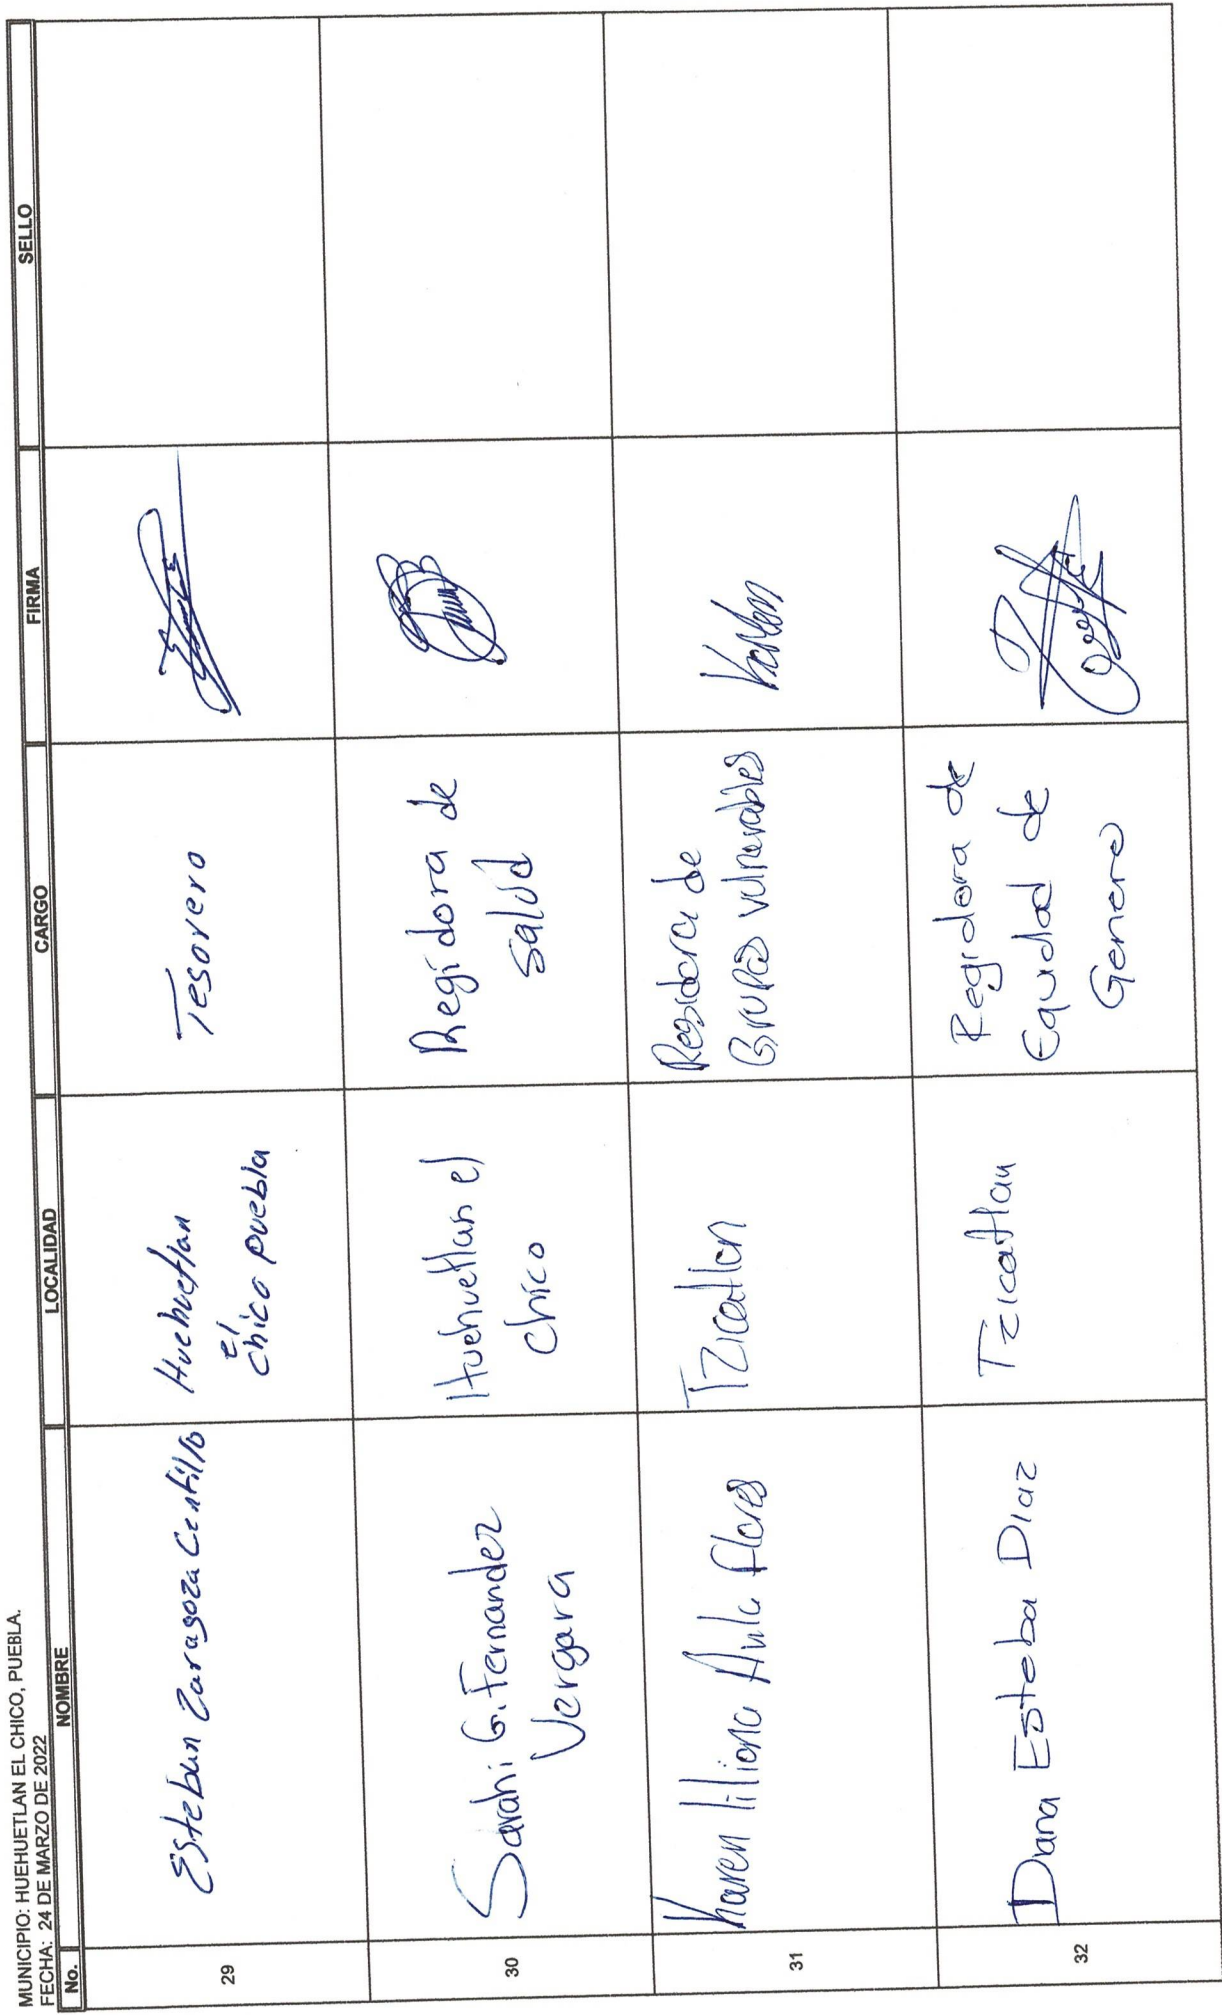 MUNICIPIO: HUEHUETLAN EL CHICO, PUEBLA.
FECHA: 24 DE MARZO DE 2022
No. NOMBRE LOCALIDAD CARGO FIRMA SELLO
29 Esteban Zaragoza Huehuetlan Tesorero
el
chico puebla
30 Sarahi G. Fernandez Huehuetlan el Regidora de
Vergara chico salud
31 Karen liliana flores Tzicatlan Regidora de Karen
Grupos vulnerables
32 Diana Esteba Diaz Tzicatlan Regidora de
Equidad de
Genero